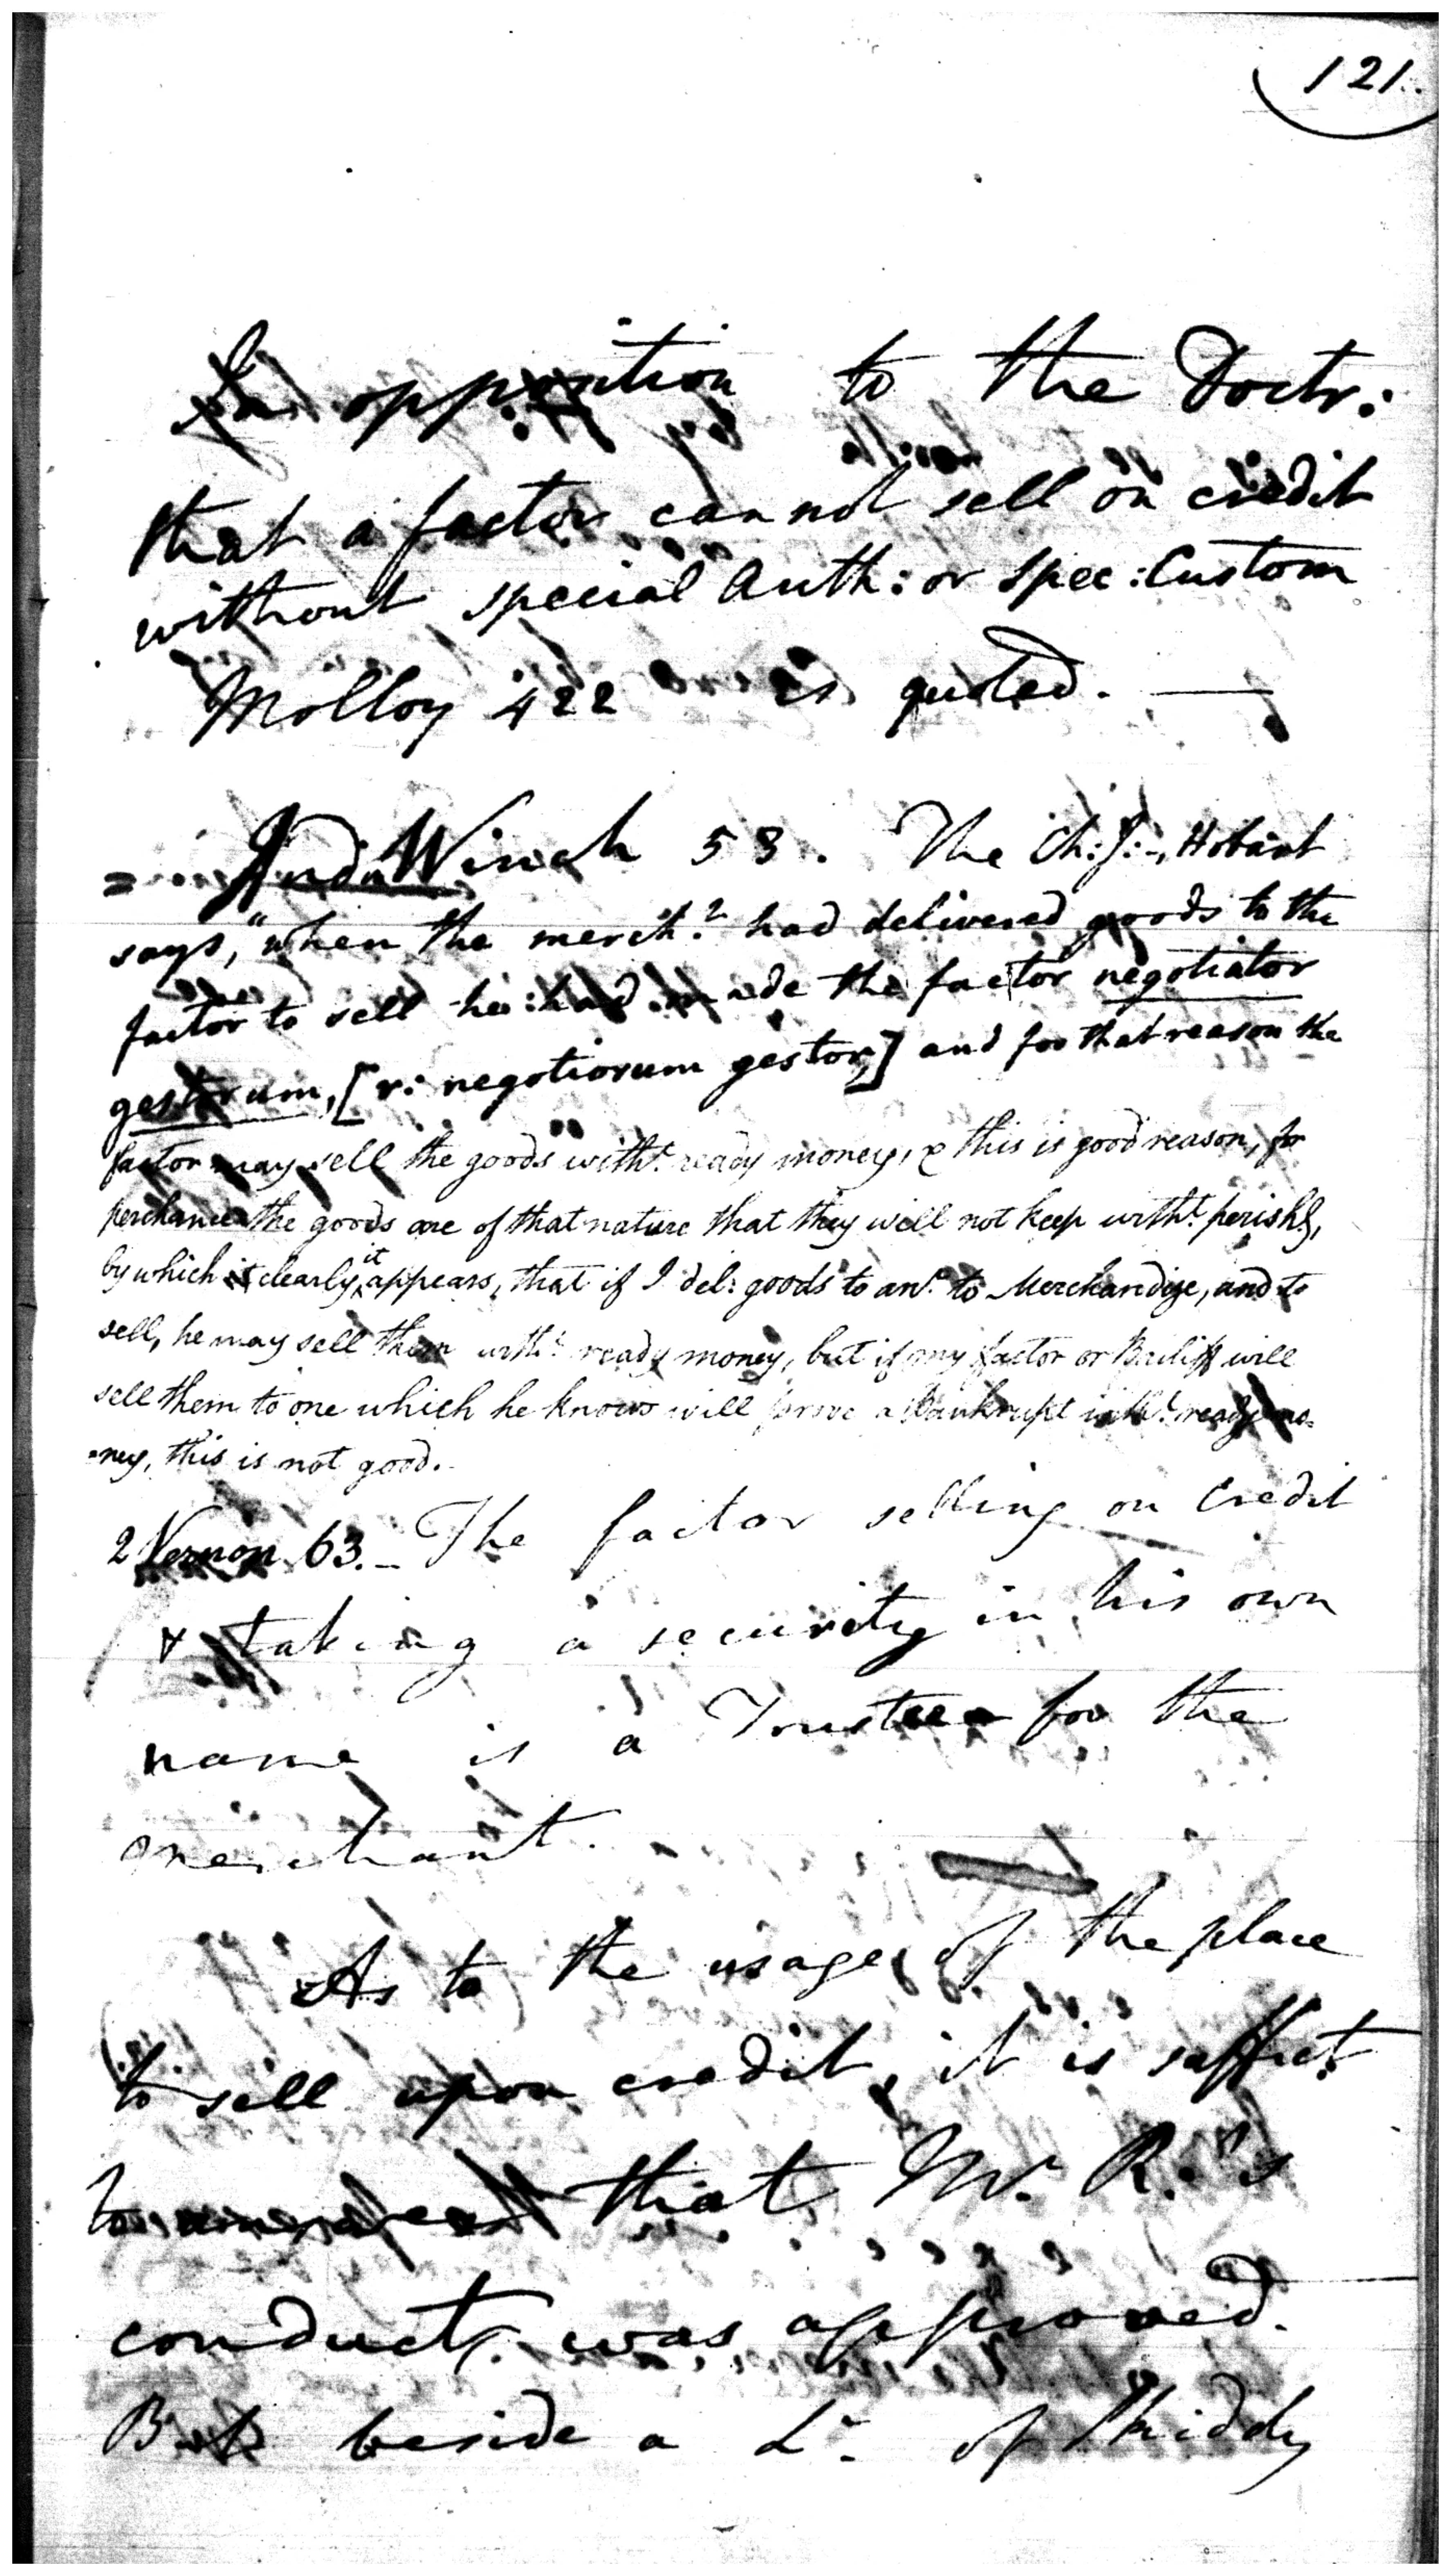 121.
In opposition to the Doctr:
that a factor cannot sell on credit
without special Auth: or spec: Custom
Molloy 422 is quoted. —
And in Winch 53. The Ch: J:, Hobart
says, "when the merch.t had delivered goods to the
factor to sell he had made the factor negotiator
gestorum, [r: negotiorum gestor,] and for that reason the
factor may sell the goods with.t ready money, & this is good reason, for
perchance the goods are of that nature that they will not keep with.t perish.g,
by which clearly it appears, that if I del: goods to an.r to Merchandize, and to
sell, he may sell them with.t ready money, but if my factor or Bailiff will
sell them to one which he knows will prove a Bankrupt with.t ready mo-
-ney, this is not good.
2 Vernon 63. – The factor selling on Credit
& taking a security in his own
name is a Trustee for the
merchant.
As to the usage of the place
to sell upon credit, it is suffict.
to that Mr. R.'s
conduct was approved.
But beside a Lr. of Skiddy